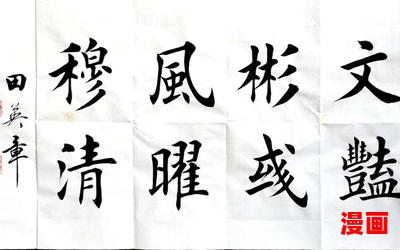 文豔
彬彧
風曜
穆清
田英章
漫画